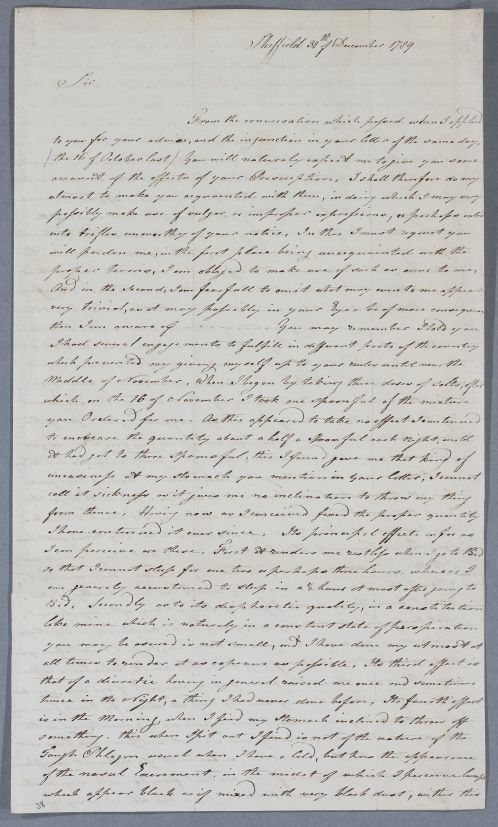 Sheffield 30th of December 1789
Sir
From the conversation which passed when I applied
to you for your advice, and the injunction in your letter of the same day,
(the 16 of October last) You will naturaly expect me to give you some
account of the effects of your Prescription, I shall therefore do my
utmost to make you acquainted with them, in doing which I may very
possibly make use of vulgar or improper expressions, or perhaps enter
into trifles unworthy of your notice, In this I must request you
will pardon me, in the first place being unacquainted with the
proper terms, I am obliged to make use of such as occur to me,
And in the Second, I am fearfull to omit what may even to me appear
very trivial, as it may possibly in your Eyes be of more consequence
than I am aware of You may remember I told you
I had several engagements to fulfill in different parts of the country
which prevented my giving myself up to your rules until near the
Middle of November, When I began by taking three doses of salts, after
which on the 16 of November I took one spoonful of the mixture
you Ordered for me. As this appeared to take no effect I continued
to encrease the quantity about a half a Spoonful each night, until
I had got to three spoonsful, this I found gave me that kind of
uneasiness at my stomach you mention in your letter, I cannot
call it sickness as it gives me no inclination to throw any thing
from thence, Having now as I conceived fixed the proper quantity
I have continued it ever since, Its principal effects as far as
I can perceive are these, First It renders me restless when I go to Bed
so that I cannot sleep for one two or perhaps three hours, whereas I
am generally accustomed to sleep in a ¼ hour at most after going to
Bed, Secondly as to its diaphoretic quality, in a constitution
like mine which is naturaly in a constant state of perspiration
you may be assured is not small, and I have done my utmost at
all times to render it as copious as possible, Its third effect is
that of a diuretic having in general raised me once and sometimes
twice in the Night, a thing I had never done before, Its fourth effect
is in the Morning, when I find my Stomach inclined to throw off
something, this when I spit out I find is not of the nature of the
Tough Phlegm usual when I have a Cold, but has the appearance
of the nasal Excrement, in the midst of which I perceive lumps
which appear black as if mixed with very black dust, within this
38